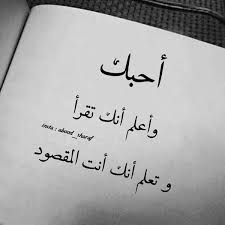 أحبك
وأعلم أنك تقرأ
insta : aboud_sharaf
و تعلم أنك أنت المقصود